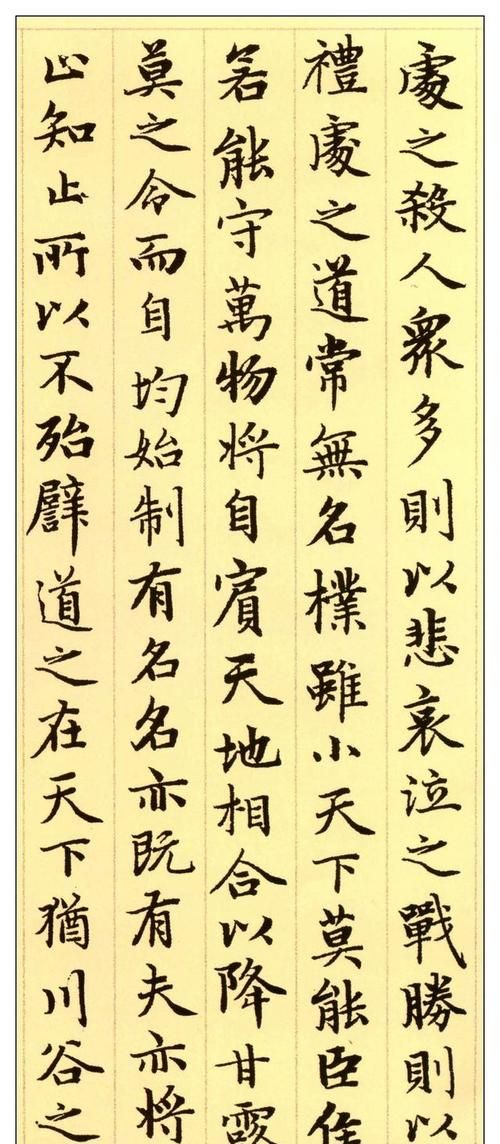 處之殺人眾多則以悲哀泣之戰勝則以
禮處之道常無名樸雖小天下莫能臣侯
若能守萬物將自賓天地相合以降甘露
莫之令而自均始制有名名亦既有夫亦將
止知止所以不殆譬道之在天下猶川谷之